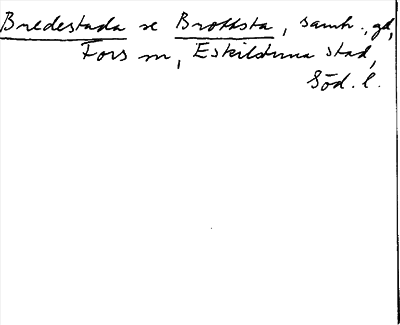 Bredestada se Brottsta, samh., gd,
Fors sn, Eskilstuna stad,
Söd. l.